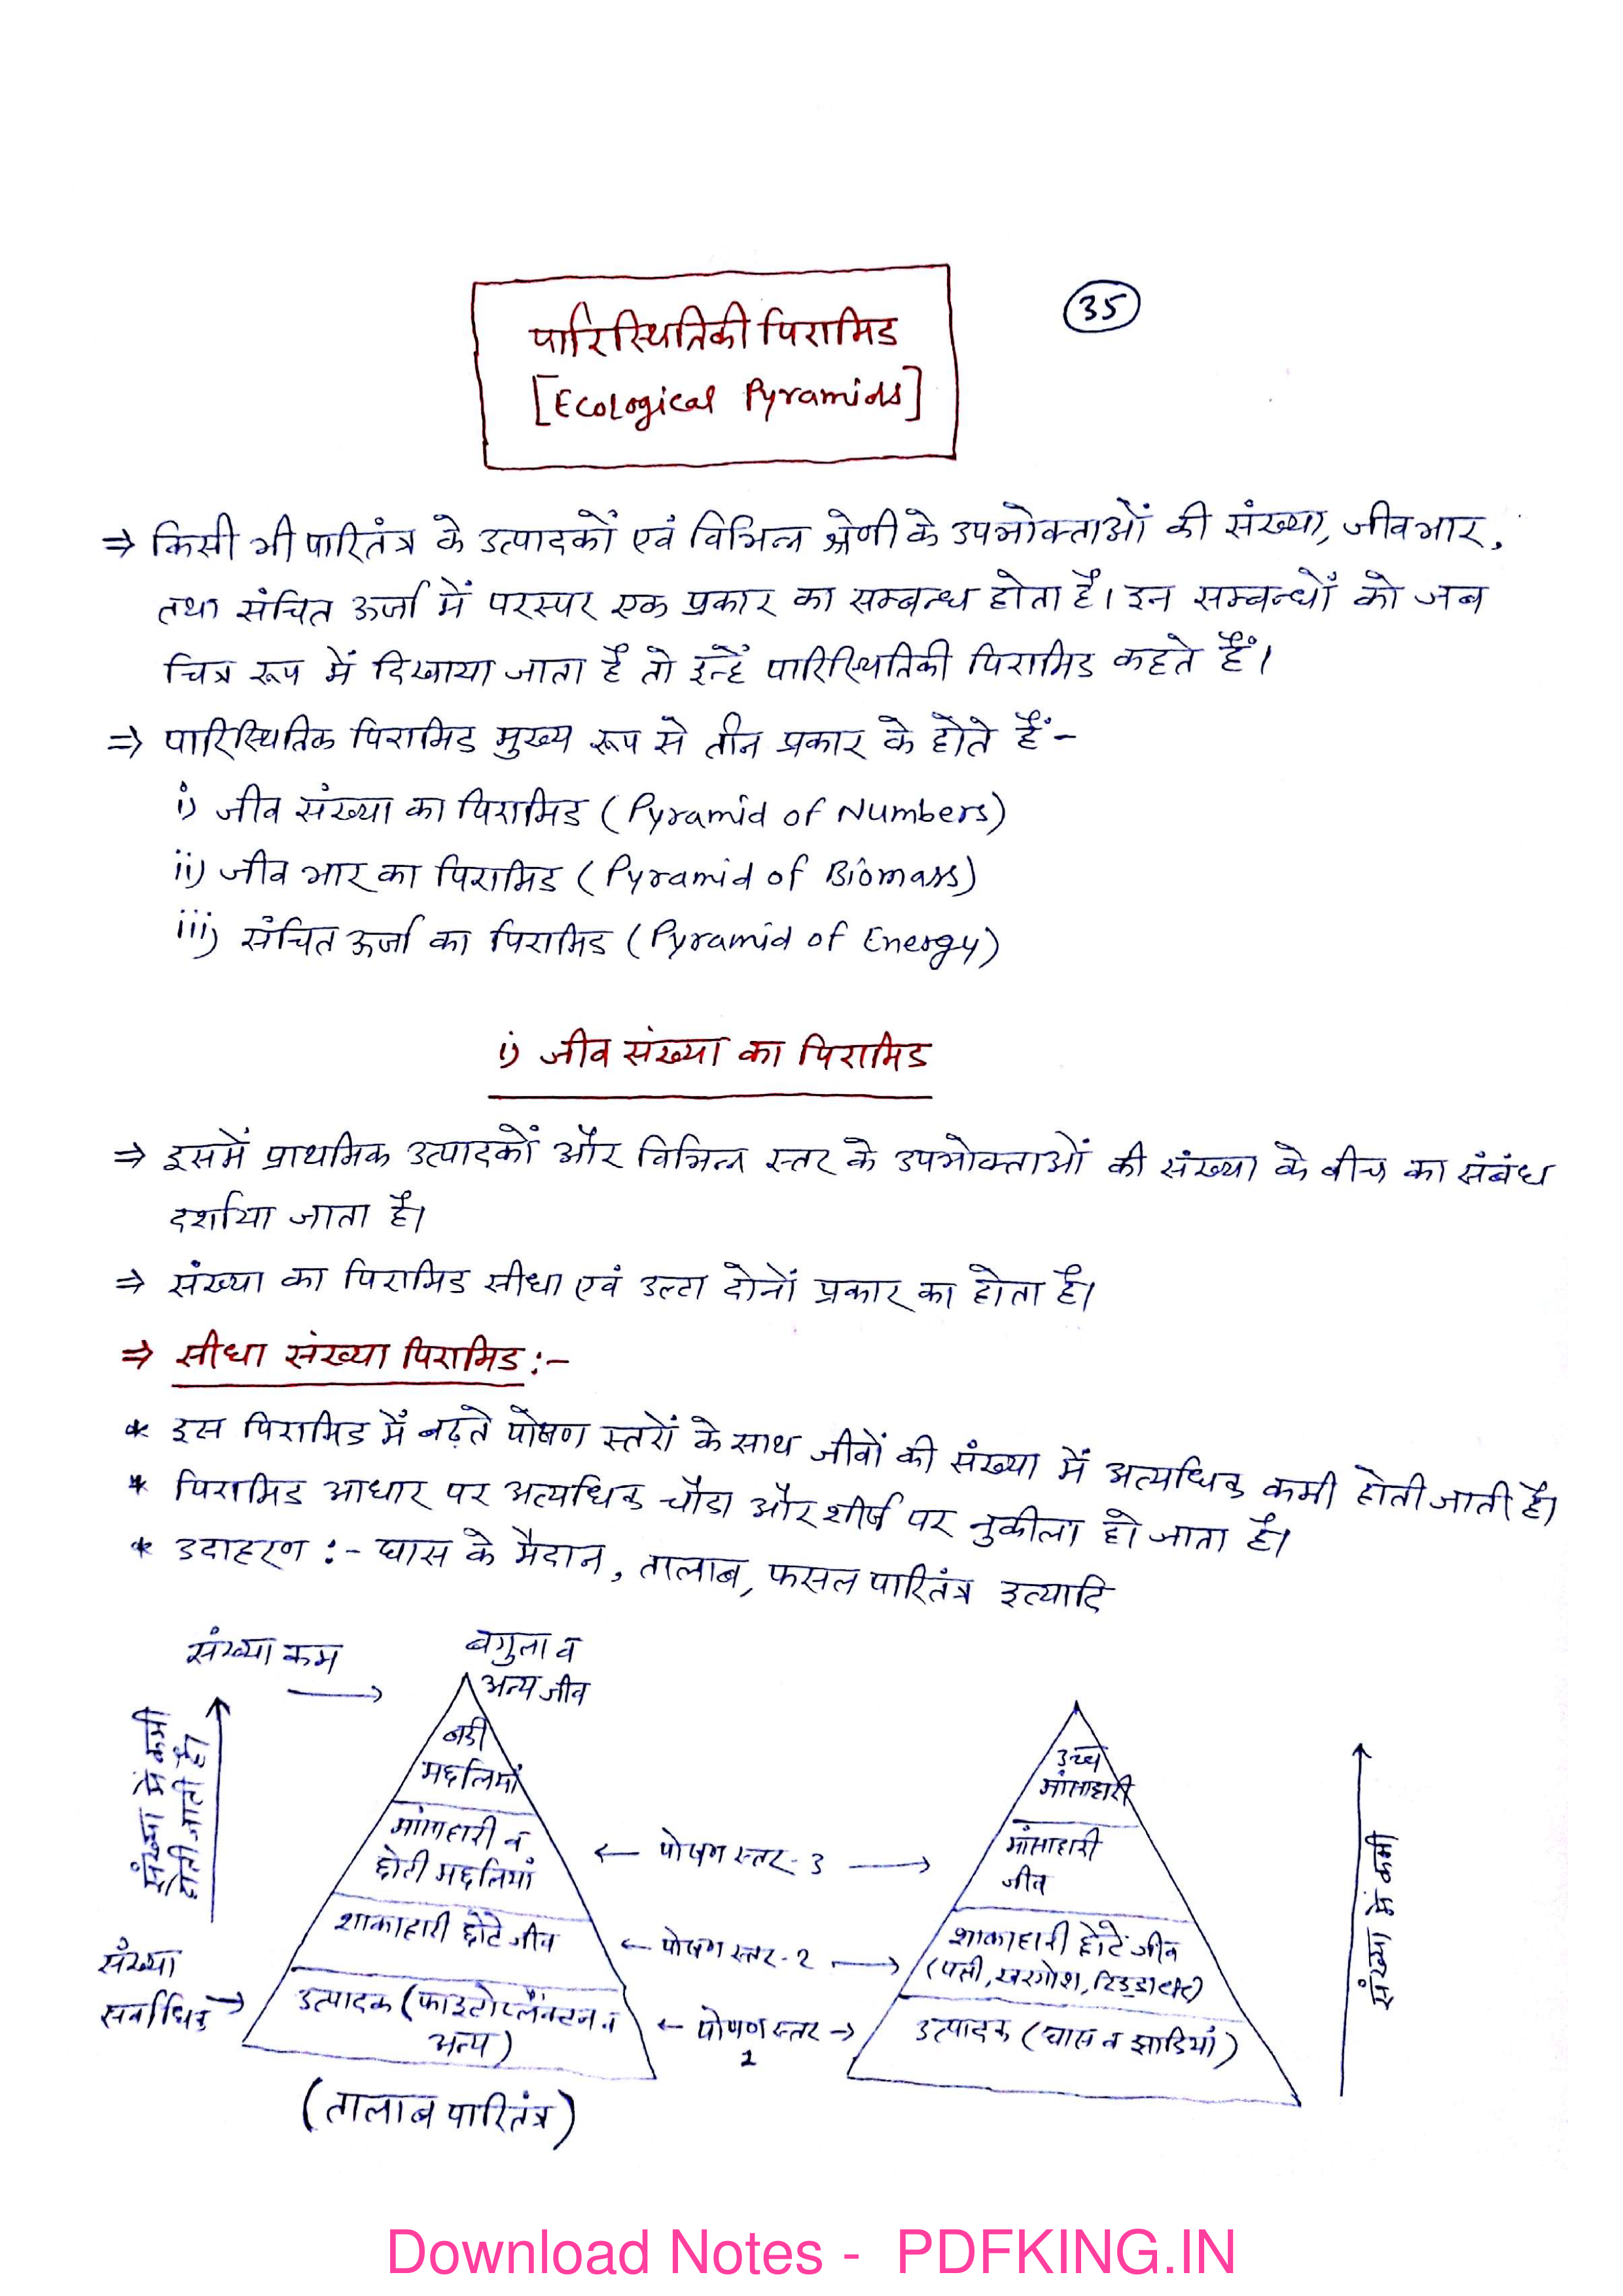 पारिस्थितिकी पिरामिड
[Ecological Pyramids]
35
⇒ किसी भी पारितंत्र के उत्पादकों एवं विभिन्न श्रेणी के उपभोक्ताओं की संख्या, जीवभार,
तथा संचित ऊर्जा में परस्पर एक प्रकार का सम्बन्ध होता है। इन सम्बन्धों को जब
चित्र रूप में दिखाया जाता है तो इन्हें पारिस्थितिकी पिरामिड कहते हैं।
⇒ पारिस्थितिक पिरामिड मुख्य रूप से तीन प्रकार के होते हैं-
i) जीव संख्या का पिरामिड (Pyramid of Numbers)
ii) जीव भार का पिरामिड (Pyramid of Biomass)
iii) संचित ऊर्जा का पिरामिड (Pyramid of Energy)
i) जीव संख्या का पिरामिड
⇒ इसमें प्राथमिक उत्पादकों और विभिन्न स्तर के उपभोक्ताओं की संख्या के बीच का संबंध
दर्शाया जाता है।
⇒ संख्या का पिरामिड सीधा एवं उल्टा दोनों प्रकार का होता है।
⇒ सीधा संख्या पिरामिड :-
* इस पिरामिड में बढ़ते पोषण स्तरों के साथ जीवों की संख्या में अत्यधिक कमी होती जाती है।
* पिरामिड आधार पर अत्यधिक चौडा और शीर्ष पर नुकीला हो जाता है।
* उदाहरण :- घास के मैदान, तालाब, फसल पारितंत्र इत्यादि
संख्या कम
बगुला व
अन्य जीव
बडी
मछलियां
मांसाहारी व
छोटी मछलियां
शाकाहारी छोटे जीव
उत्पादक (फाइटोप्लैंक्टन व
अन्य)
(तालाब पारितंत्र)
संख्या में कमी
होती जाती है।
संख्या
सर्वाधिक →
← पोषण स्तर - 3 →
← पोषण स्तर - 2 →
← पोषण स्तर →
1
उच्च
मांसाहारी
मांसाहारी
जीव
शाकाहारी छोटे जीव
(पक्षी, खरगोश, टिड्डा etc)
उत्पादक (घास व झाडियां)
संख्या में कमी
Download Notes - PDFKING.IN